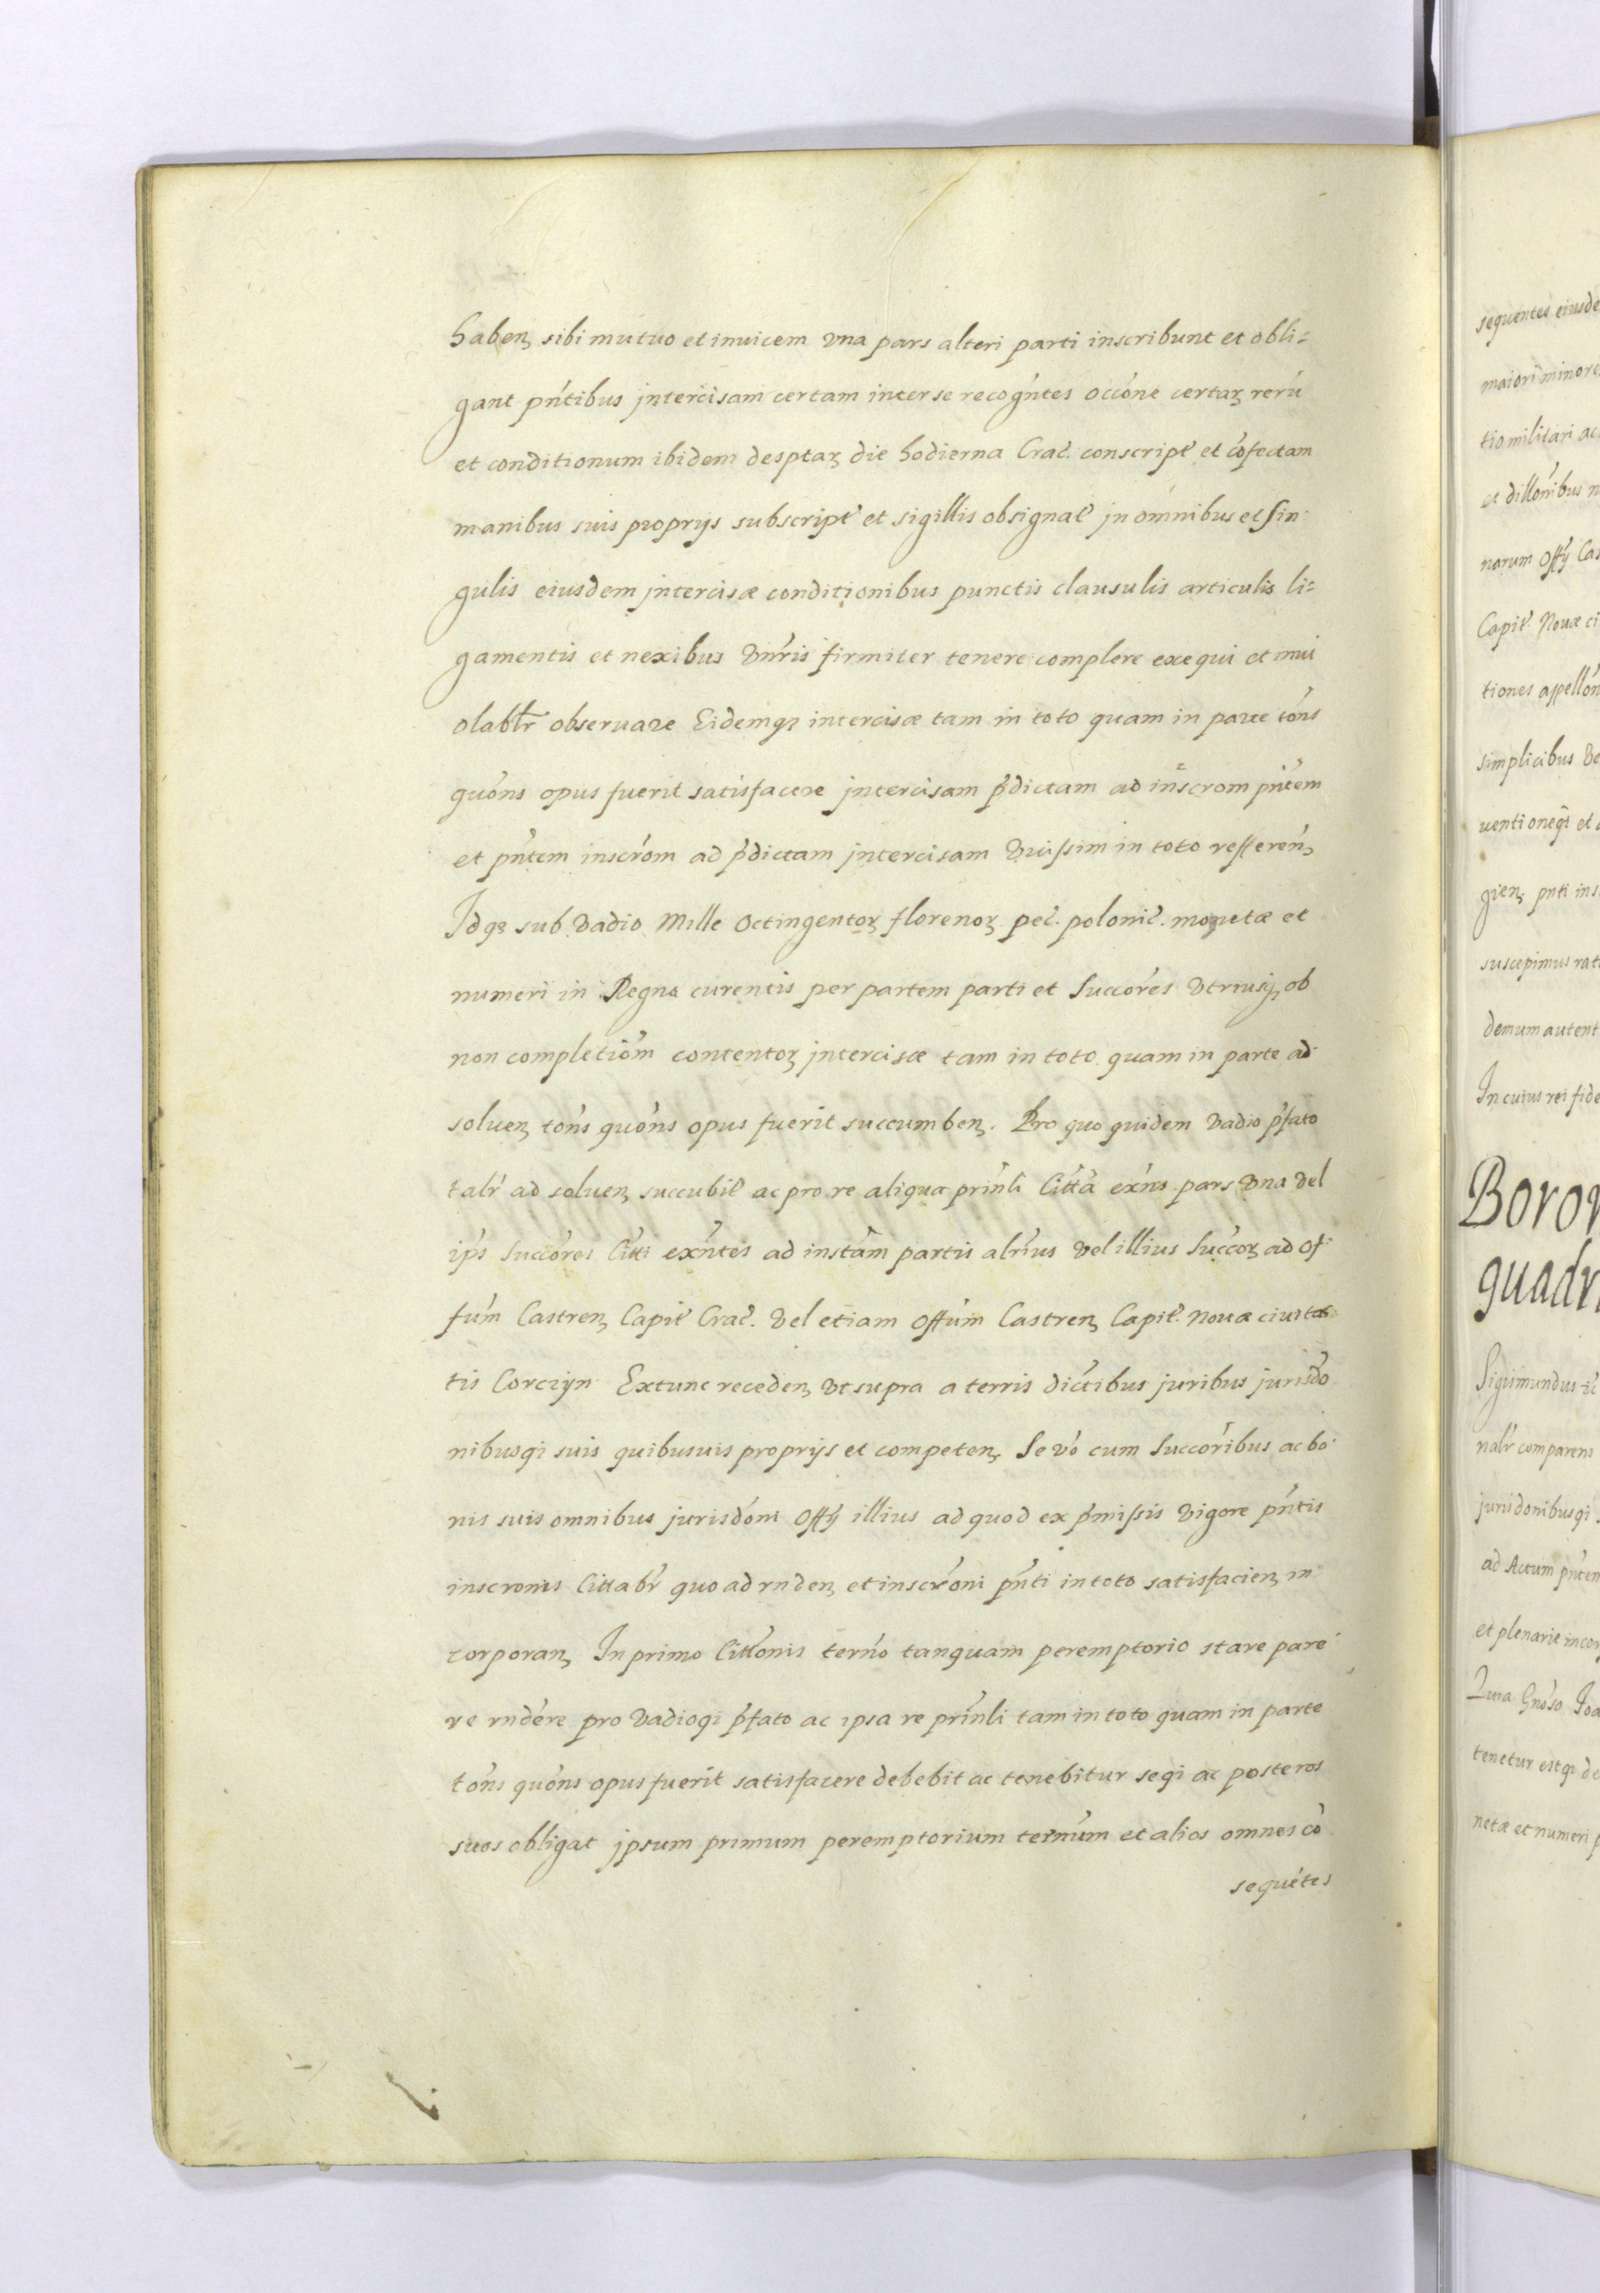 haben, sibi mutuo et invicem una pars alteri parti inscribunt et obli=
gant pntibus jntercisam certam inter se recogntes occõne certaꝝ rerũ
et conditionum ibidem desptaꝝ die hodierna Crac. conscript et cõfectam
manibus suis proprijs subscript et sigillis obsignat jn omnibus et sin
gulis eiusdem jntercisæ conditionibus punctis clausulis articulis li=
gamentis et nexibus vnris firmiter tenere complere exequi et inui
olablr obseruare Eidemqꝫ intercisæ tam in toto quam in parte tõns
quõns opus fuerit satisfacere jntercisam pdictam ad inscrom pntem
et pntem inscrom ad pdictam jntercisam vicissim in toto refferen,
Jdqꝫ sub vadio Mille Octingentoꝝ florenoꝝ pec. polonic. monetæ et
numeri in Regno curentis per partem parti et Succores vtriusqꝫ ob
non completiom contentoꝝ jntercisæ tam in toto quam in parte ad
soluen, tõns quõns opus fuerit succumben, Pro quo quidem vadio pfato
talr ad soluen, succubit ac pro re aliqua prinli Citta exns pars vna vel
ips Succores Citti exntes ad instam partis alrius vel illius Succoꝝ ad Of
fum Castren, Capit Crac. vel etiam Offum Castren, Capit. Nouæ ciuita
tis Corczyn Extunc receden, vt supra a terris dictibus juribus jurisdo
nibusqi suis quibusuis proprijs et competen, Se vo cum Succoribus ac bo
nis suis omnibus jurisdoni Offij illius ad quod ex pmissis vigore pntis
inscronis Cittabr quo ad rnden, et inscroni pnti in toto satisfacien, in
corporan, In primo Cittonis terno tanquam peremptorio stare pare
re rndere pro vadioqi pfato ac ipsa re prinli tam in toto quam in parte
tõns quõns opus fuerit satisfacere debebit ac tenebitur seqi ac posteros
suos obligat jpsum primum peremptorium ternum et alios omnes cõ
sequẽtes
sequentes eiusde
maiori minore
tio militari ac
et dillonibus n
narum Offij Cas
Capit. Nouæ ci
tiones appellon
simplicibus ve
uentioneqi et
gien, pnti ins
suscepimus rat
demum autent
In cuius rei fide
Boror
quadri
Sigismundus
nalr comparens
jurisdonibusqi
ad Actum pntem
et plenarie incor
Quia Gnoso Joa
tenetur estqi de
netæ et numeri p